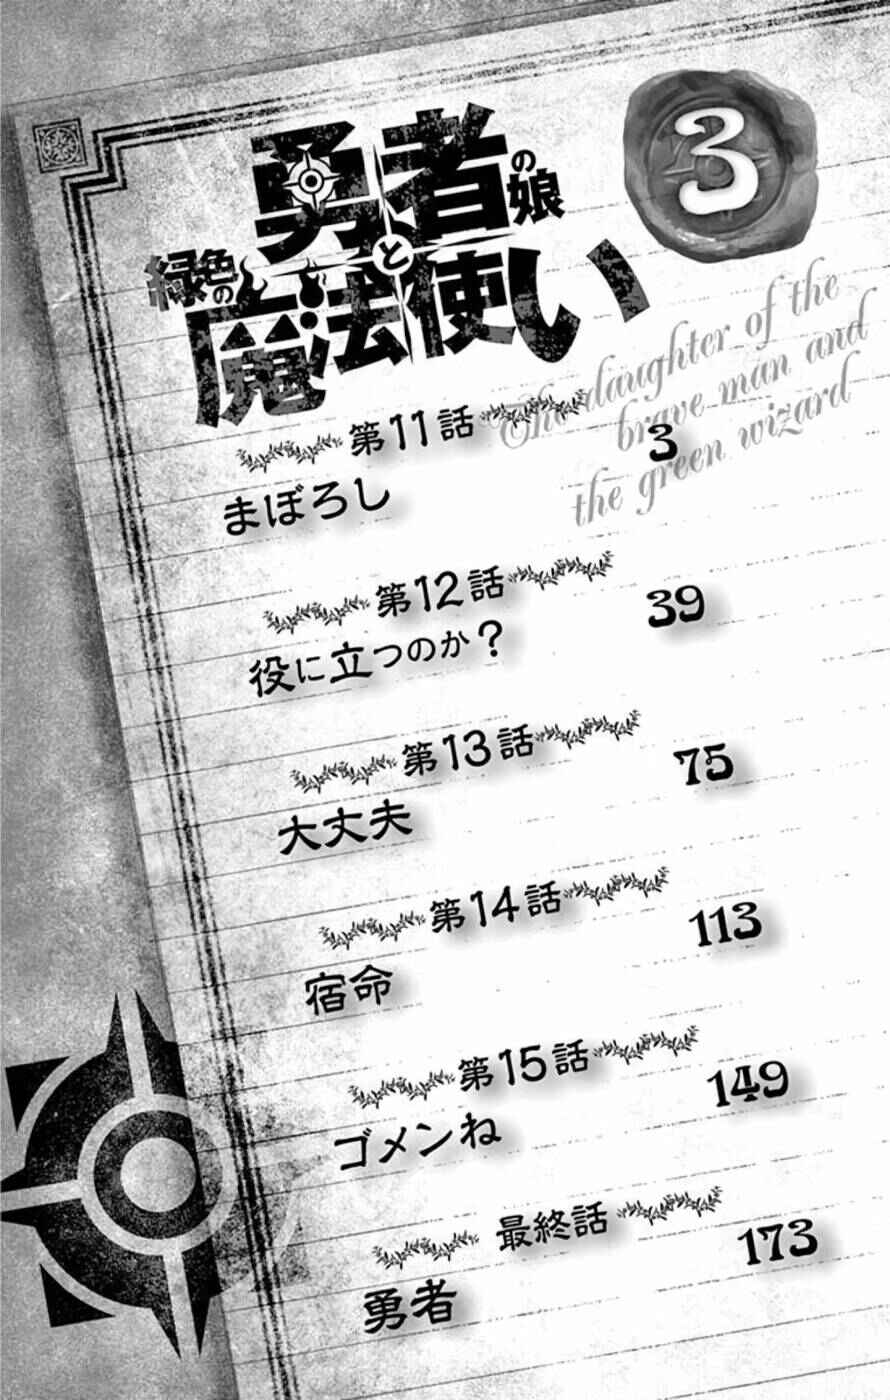 勇者の娘
と
緑色の
魔法使い
3
The daughter of the
brave man and
the green wizard
第11話
3
まぼろし
第12話
39
役に立つのか？
第13話
75
大丈夫
第14話
113
宿命
第15話
149
ゴメンね
最終話
173
勇者